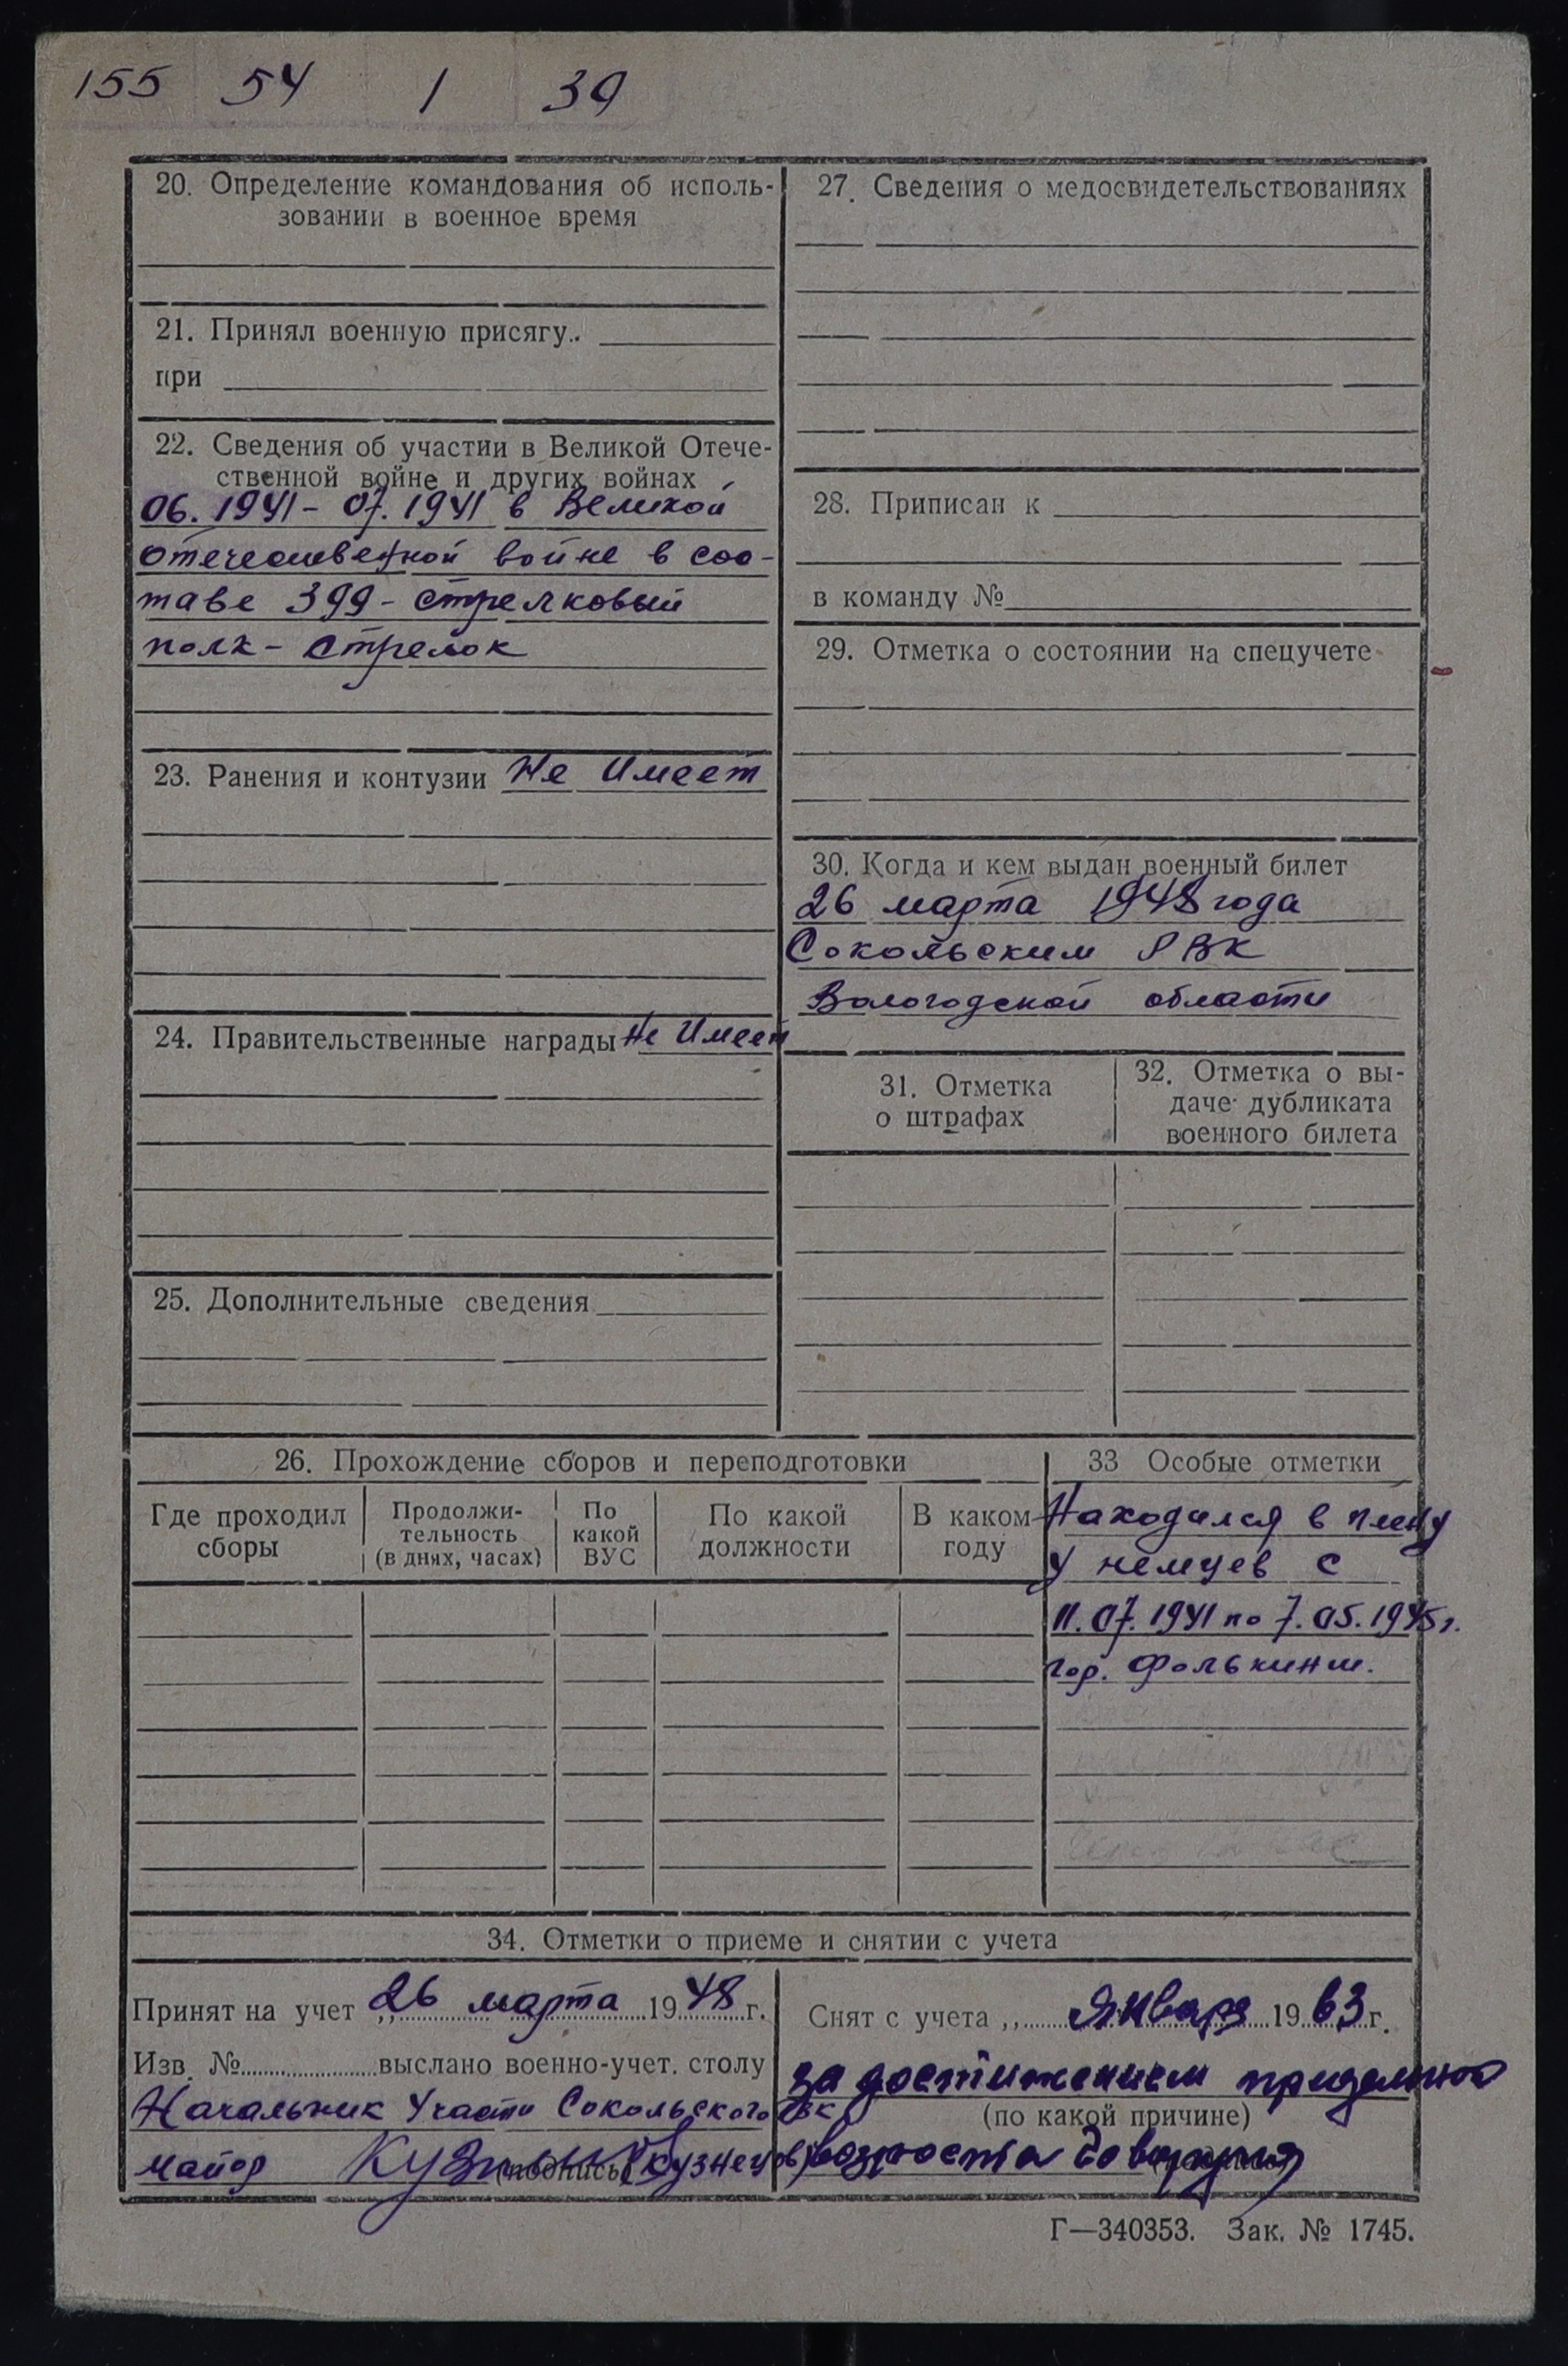 155 54 1 39
20. Определение командования об исполь-
зовании в военное время
21. Принял военную присягу..
при
22. Сведения об участии в Великой Отече-
ственной войне и других войнах
06. 1941 - 07. 1941 в Великой
отечественной войне в сос-
таве 399 - стрелковый
полк - Стрелок
23. Ранения и контузии Не Имеет
24. Правительственные награды Не Имеет
25. Дополнительные сведения
27. Сведения о медосвидетельствованиях
28. Приписан к
в команду №
29. Отметка о состоянии на спецучете
30. Когда и кем выдан военный билет
26 марта 1948 года
Сокольским РВК
Вологодской области
31. Отметка
о штрафах
32. Отметка о вы-
даче дубликата
военного билета
26. Прохождение сборов и переподготовки
Где проходил
сборы
Продолжи-
тельность
(в днях, часах)
По
какой
ВУС
По какой
должности
В каком
году
33 Особые отметки
Находился в плену
у немцев с
11.07.1941 по 7.05.1945 г.
гор. Фолькинш.
34. Отметки о приеме и снятии с учета
Принят на учет ,, 26 марта 1948 г.
Изв. № выслано военно-учет. столу
Начальник 4 части Сокольского РВК
майор (подпись) (Кузнецов)
Снят с учета ,, Января 1963 г.
за достижением придельного
(по какой причине)
возроста
Г—340353. Зак. № 1745.